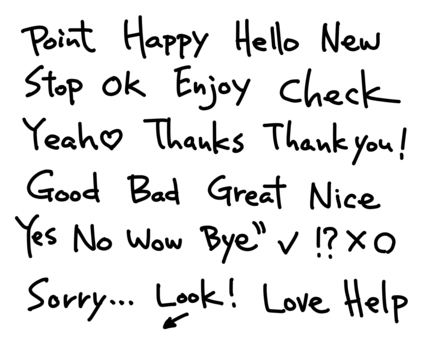 Point Happy Hello New
Stop Ok Enjoy Check
Yeah♡ Thanks Thank you!
Good Bad Great Nice
Yes No Wow Bye" ✓ !? × ○
Sorry... Look! Love Help